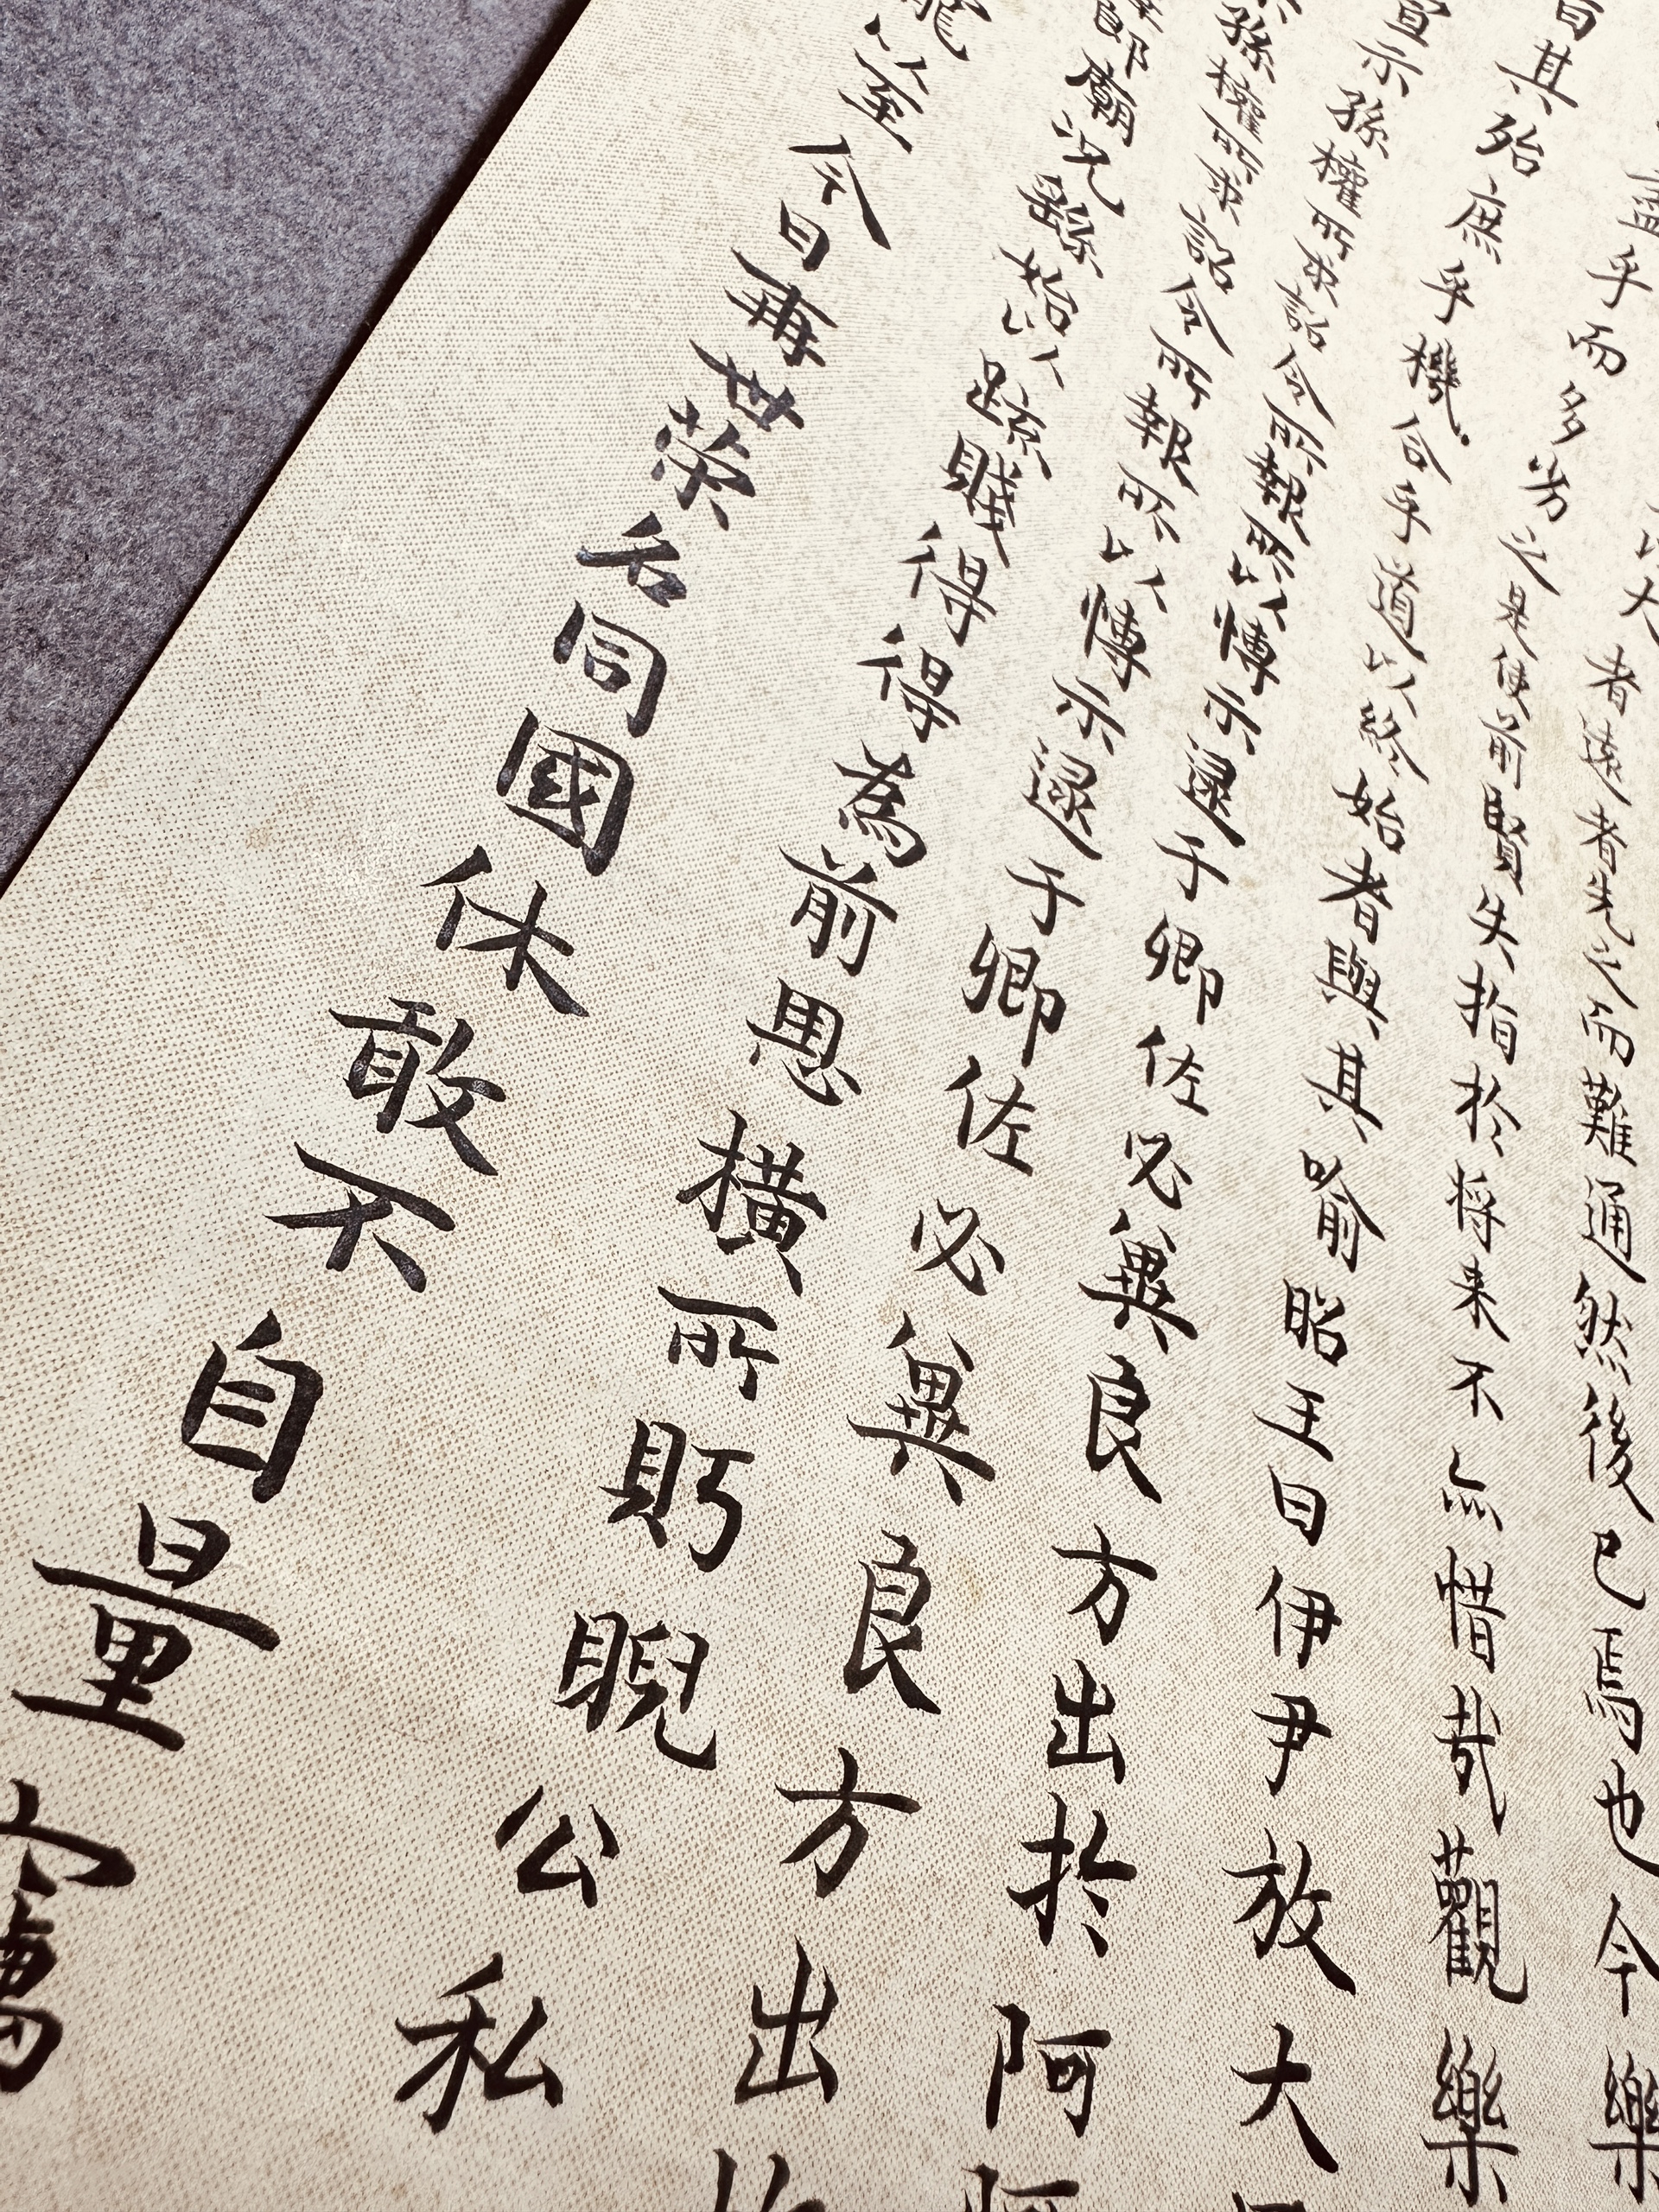 大者遠者先之而難通然後已焉也今樂
盡乎而多劣之是使前賢失指於将来不無惜哉觀樂
其殆庶乎機合乎道以終始者與其喻昭王曰伊尹放大
宣示孫權所求詔令所報所以博示逮于卿佐必冀良方出於阿
孫權所求詔令所報所以博示逮于卿佐必冀良方出
郎廟況繇始以疏賤得得為前思橫所眄睨公私
今日再世榮名同國休敢不自量竊